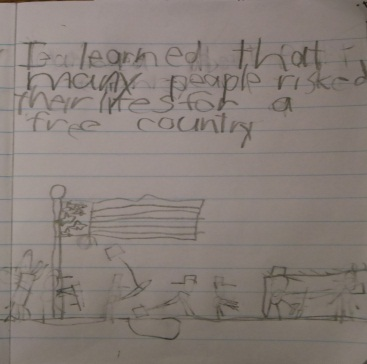 I learned that
many people risked
their lifes for a
free country